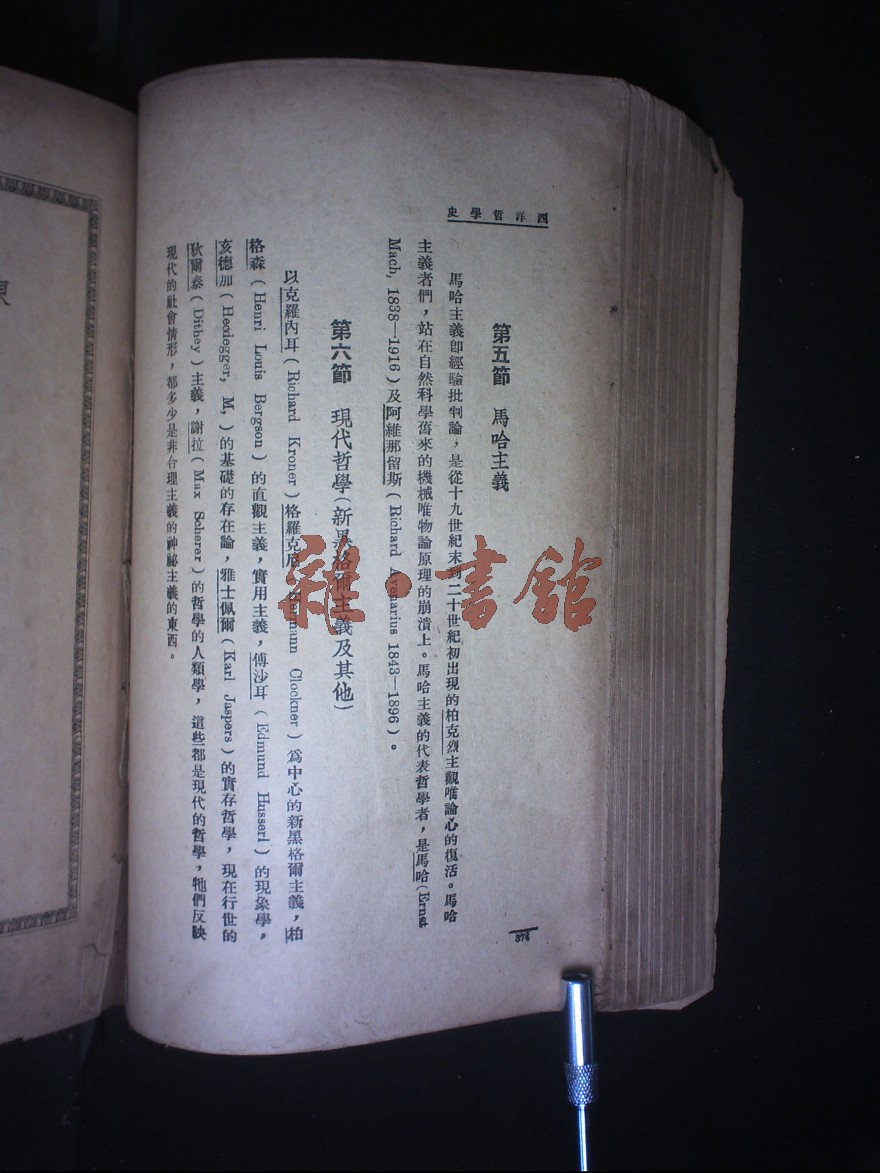 西洋哲學史
第五節 馬哈主義
馬哈主義卽經驗批判論，是從十九世紀末到二十世紀初出現的柏克烈主觀唯論心的復活。馬哈
主義者們，站在自然科學舊來的機械唯物論原理的崩潰上。馬哈主義的代表哲學者，是馬哈（Ernst
Mach, 1838—1916）及阿維那留斯（Richard Avenarius 1843—1896）。
第六節 現代哲學（新黑格爾主義及其他）
以克羅內耳（Richard Kroner）格羅克尼（Hermann Clockner）爲中心的新黑格爾主義，柏
格森（Henri Louis Bergson）的直觀主義，實用主義，傅沙耳（Edmund Husserl）的現象學，
亥德加（Heidegger, M,）的基礎的存在論，雅士佩爾（Karl Jaspers）的實存哲學，現在行世的
狄爾泰（Dithey）主義，謝拉（Max Scherer）的哲學的人類學，這些都是現代的哲學，牠們反映
現代的社會情形，都多少是非合理主義的神祕主義的東西。
374
雜·書館